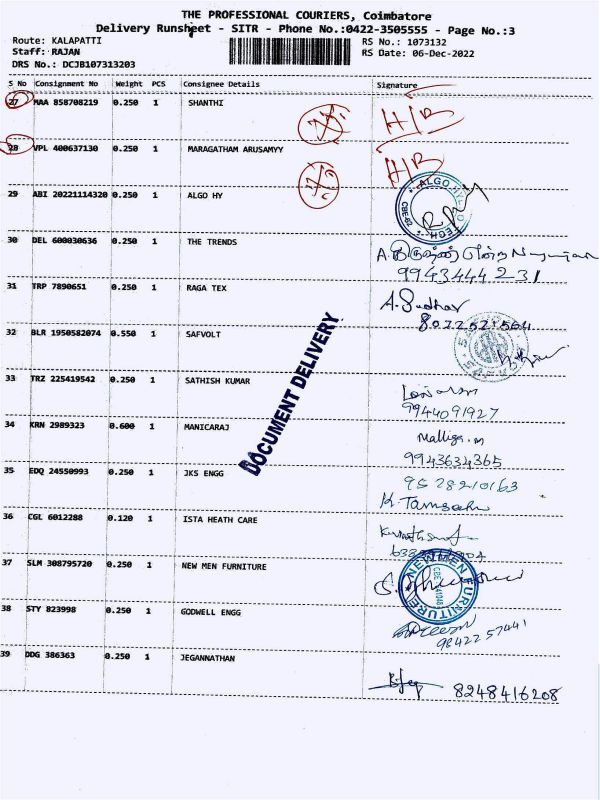 THE PROFESSIONAL COURIERS, Coimbatore
Delivery Runsheet - SITR - Phone No.:0422-3505555 - Page No.:3
Route: KALAPATTI
Staff: RAJAN
DRS No.: DCJB107313203
RS No.: 1073132
RS Date: 06-Dec-2022
S No Consignment No Weight PCS Consignee Details Signature
27 MAA 858708219 0.250 1 SHANTHI H/B
28 VPL 400637130 0.250 1 MARAGATHAM ARUSAMYY H/B
29 ABI 20221114320 0.250 1 ALGO HY
30 DEL 600030636 0.250 1 THE TRENDS
9943444231
31 TRP 7890651 0.250 1 RAGA TEX A. Sudhar
32 BLR 1950582074 0.550 1 SAFVOLT
33 TRZ 225419542 0.250 1 SATHISH KUMAR
9944091927
34 KRN 2989323 0.600 1 MANICARAJ Malliga.m
9943634365
35 EDQ 24550993 0.250 1 JKS ENGG 9528210163
36 CGL 6012288 0.120 1 ISTA HEATH CARE
37 SLM 308795720 0.250 1 NEW MEN FURNITURE
NEWMEN FURNITURE
38 STY 823998 0.250 1 GODWELL ENGG
9842257441
39 DDG 386363 0.250 1 JEGANNATHAN
8248416208
DOCUMENT DELIVERY